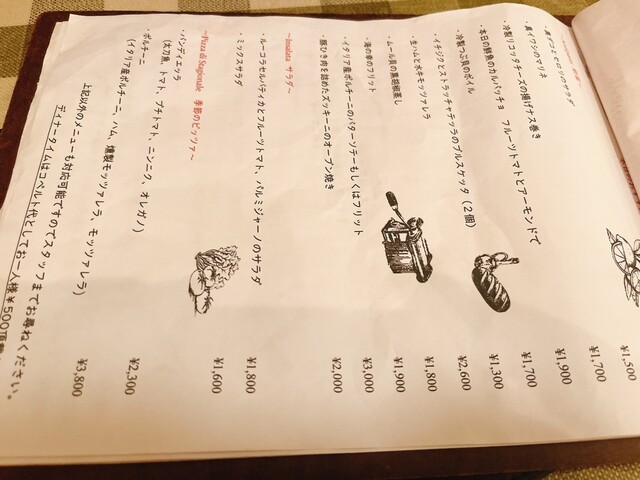 ・真ダコとセロリのサラダ
・真イワシのマリネ ¥1,500
・冷製リコッタチーズの揚げナス巻き ¥1,700
・本日の鮮魚のカルパッチョ フルーツトマトとアーモンドで ¥1,900
・冷製つぶ貝のボイル ¥1,700
・イチジクとストラッチャテッラのブルスケッタ(2個) ¥1,300
・生ハムと水牛モッツァレラ ¥2,600
・ムール貝の黒胡椒蒸し ¥1,800
・海の幸のフリット ¥1,900
・イタリア産ポルチーニのバターソテーもしくはフリット ¥3,000
・豚ひき肉を詰めたズッキーニのオーブン焼き ¥2,000
～Insalata サラダ～
・ルーコラセルバティカとフルーツトマト、パルミジャーノのサラダ ¥1,800
・ミックスサラダ ¥1,600
～Pizza di Stagionale 季節のピッツァ～
・バンディエッラ ¥2,300
(太刀魚、トマト、プチトマト、ニンニク、オレガノ)
・ポルチーニ ¥3,800
(イタリア産ポルチーニ、ハム、燻製モッツァレラ、モッツァレラ)
上記以外のメニューも対応可能ですのでスタッフまでお尋ねください。
ディナータイムはコペルト代としてお一人様¥500頂